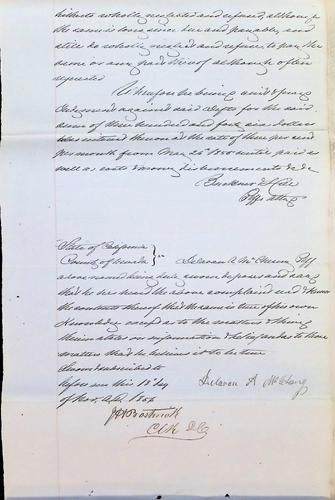 hitherto wholly neglected and refused, although
the same is long since due and payable, and
still do wholly neglect and refuse, to pay the
same or any part thereof although often
requested
Wherefore he brings suit & prays
Judgement against said Defts for the said
sum of three hundred and forty six dollars
Interest thereon at the rate of three per cent
per month from May 25th 1855 until paid as
well as costs & moving disbursements &c &c
Buckner & Hill
Plffs attys
State of California
County of Nevada } ss
Delavan A. Plff
above named being duly sworn deposes and says
that he has read the above complaint and knows
the contents thereof that the same is true of his own
Knowledge except as to the matters & things
therein stated on information & belief and as to those
matters that he believes it to be true
Sworn & subscribed to
before me this 13th day
of Nov. A.D. 1856
Delavan A
J H Bostwick
Clk D.C.